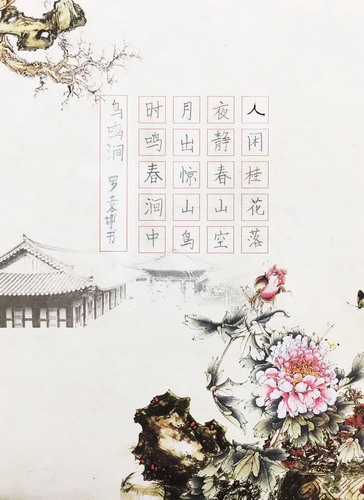 人闲桂花落
夜静春山空
月出惊山鸟
时鸣春涧中
鸟鸣涧 罗袁坤书